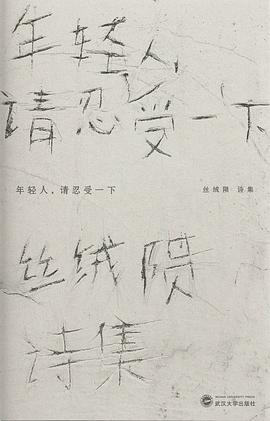 年轻人，
请忍受一下
年轻人，请忍受一下
丝绒陨 诗集
丝绒陨
诗集
WUHAN UNIVERSITY PRESS
武汉大学出版社